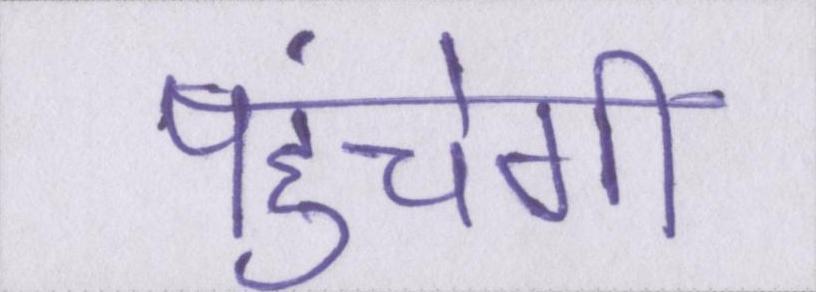 पहुंचेगी